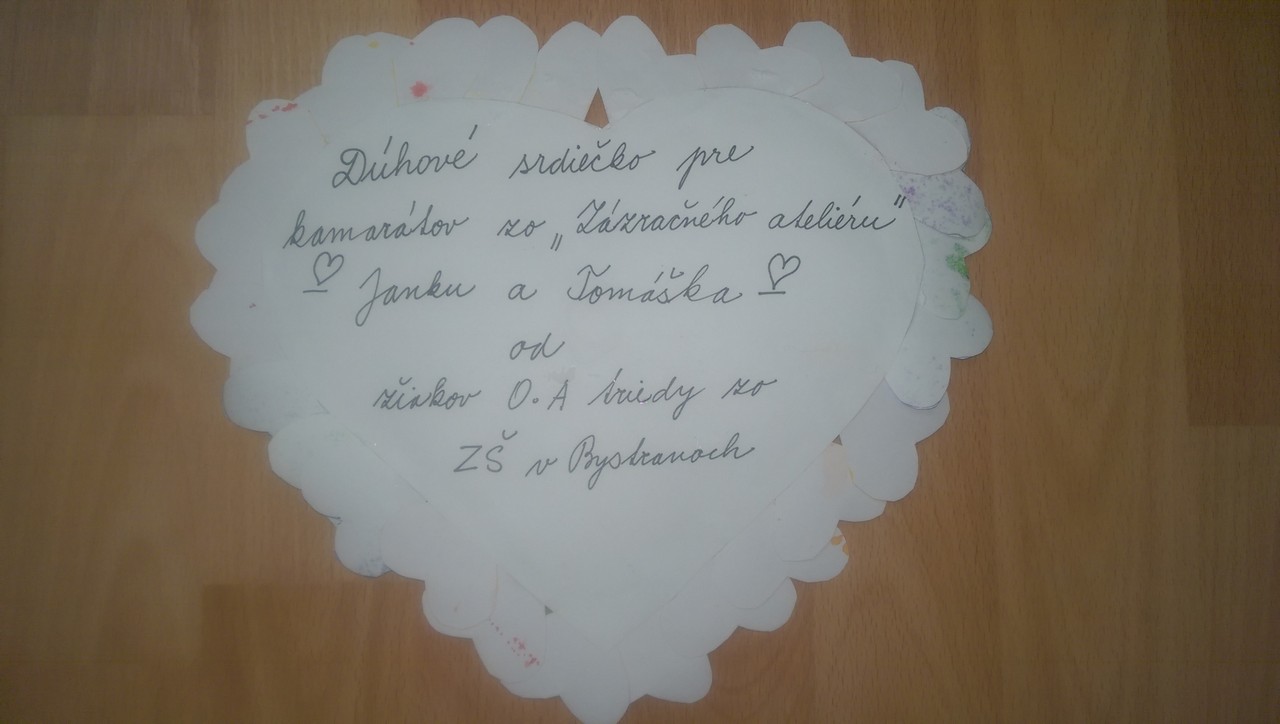 Dúhové srdiečko pre
kamarátov zo „Zázračného ateliéru"
♡ Janku a Tomáška ♡
od
žiakov O.A triedy zo
ZŠ v Bystranoch